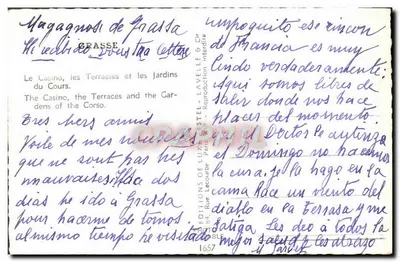 Magagnosc de Grassa
He recibido vous tra lettera
GRASSE
Le Casino, les Terrasses et les Jardins
du Cours.
The Casino, the Terraces and the Gar-
dens of the Corso.
Tres chers amis
Voilà de mes nouvelles
que ne sont pas tres
mauvaises. Hace dos
dias he ido à Grassa
pour hacerme de
al mismo tiempo he visitado
un poquito, ese rincon
de Francia es muy
lindo verdaderamente;
aqui somos libres de
salir donde nos hace
placer del momento
que el Doctor lo autoriza
el Domingo no hacemos
la cura, je la hago en la
cama hace un viento del
diablo en la terrasa y me
fatiga. Les deo à todos la
mejor salud y les abrazo
EDITIONS DE LUXE ESTEL - LAVELLE & Cie
Reproduction Interdite
1657